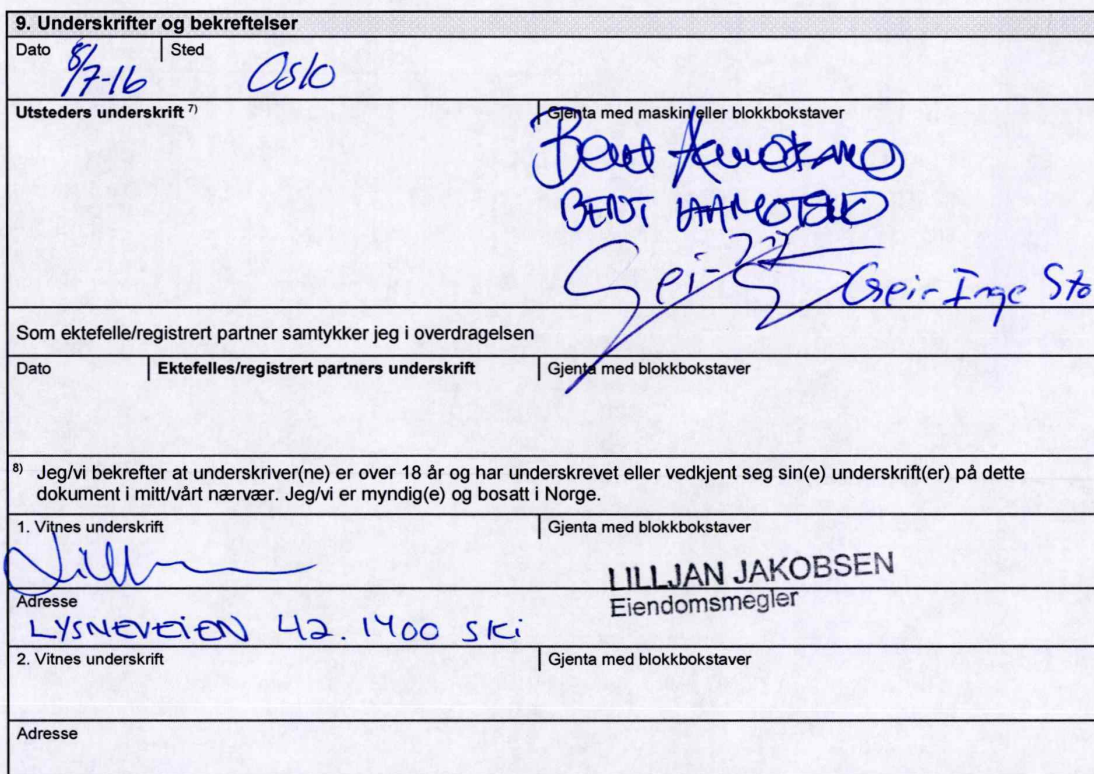 9. Underskrifter og bekreftelser
Dato Sted
8/7-16 Oslo
Utsteders underskrift 7) Gjenta med maskin eller blokkbokstaver
Bent
BENT
Geir Geir Inge Sto
Som ektefelle/registrert partner samtykker jeg i overdragelsen
Dato Ektefelles/registrert partners underskrift Gjenta med blokkbokstaver
8) Jeg/vi bekrefter at underskriver(ne) er over 18 år og har underskrevet eller vedkjent seg sin(e) underskrift(er) på dette
dokument i mitt/vårt nærvær. Jeg/vi er myndig(e) og bosatt i Norge.
1. Vitnes underskrift Gjenta med blokkbokstaver
LILLJAN JAKOBSEN
Eiendomsmegler
Adresse
LYSNEVEIEN 42. 1400 SKi
2. Vitnes underskrift Gjenta med blokkbokstaver
Adresse